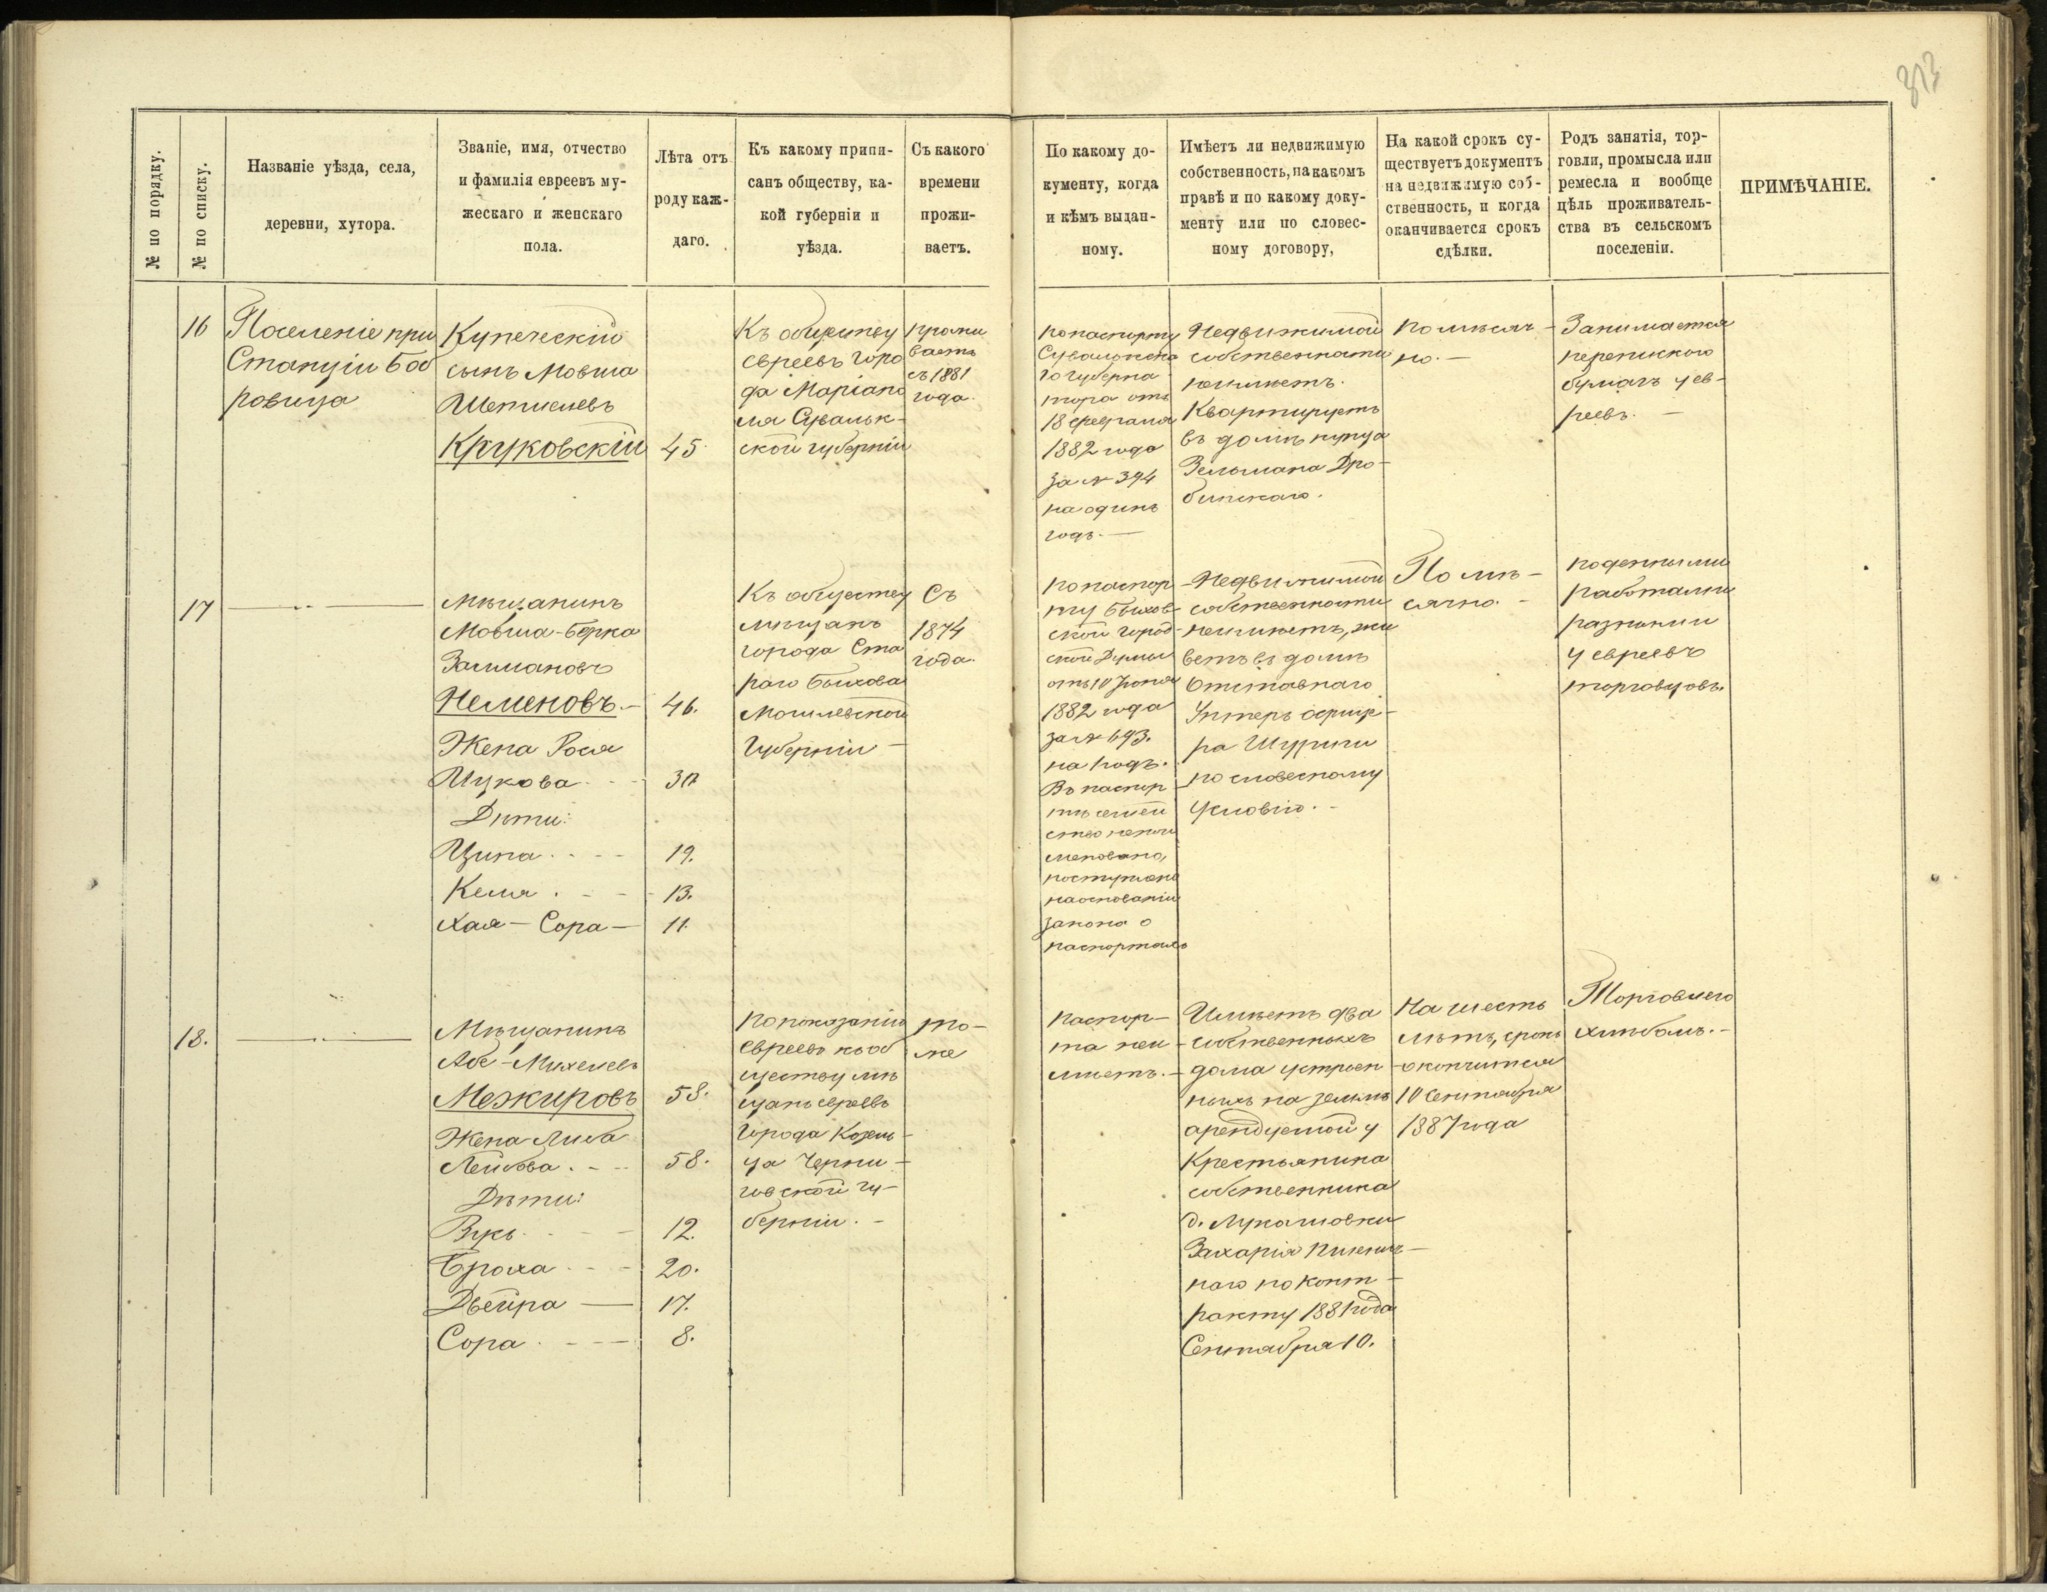 313
№ по порядку.
№ по списку.
Названіе уѣзда, села,
деревни, хутора.
Званіе, имя, отчество
и фамилія евреевъ му-
жескаго и женскаго
пола.
Лѣта отъ
роду каж-
даго.
Къ какому припи-
санъ обществу, ка-
кой губерніи и
уѣзда.
Съ какого
времени
прожи-
ваетъ.
По какому до-
кументу, когда
и кѣмъ выдан-
ному.
Имѣетъ ли недвижимую
собственность, на какомъ
правѣ и по какому доку-
менту или по словес-
ному договору,
На какой срокъ су-
ществуетъ документъ
на недвижимую соб-
ственность, и когда
оканчивается срокъ
сдѣлки.
Родъ занятія, тор-
говли, промысла или
ремесла и вообще
цѣль проживатель-
ства въ сельскомъ
поселеніи.
ПРИМѢЧАНІЕ.
16
Поселеніе при
Станціи Боб
ровица
Купеческій
сынъ Мовша
Шепшелевъ
Круковскій
45
Къ обществу
евреевъ горо
да Маріапо
ля Сувальк-
ской губерніи
прожи
ваетъ
съ 1881
года.
по паспорту
Сувалкска
го губерна
тора отъ
18 февраля
1882 года
за № 394
на одинъ
годъ. —
Недвижимой
собственности
неимѣетъ.
Квартируетъ
въ домѣ купца
Зельмана Дро-
бинскаго.
Помѣсяч-
но. —
Занимается
перепискою
бумагъ у ев-
реевъ. —
17
— „ —
Мѣщанинъ
Мовша-Берка
Залмановъ
Неменовъ. —
46.
Жена Рося
Ицкова - -
Дѣти:
Ципа - - -
19.
Келя . - -
13.
Хая — Сора —
11.
Къ обществу
мѣщанъ
города Ста
раго Быхова
Могилевской
Губерніи —
Съ
1874
года.
по паспор
ту Быхов-
ской город-
ской Думы
отъ 10 Іюня
1882 года
за № 693.
на 1 годъ.
Въ паспор
тѣ семей
ство непои
меновано,
поступлено
на основаніи
закона о
паспортахъ
Недвижимой
собственности
неимѣетъ, жи
ветъ въ домѣ
Отставнаго
Унтеръ офице-
ра Шурыги
по словесному
условію. -
По мѣ-
сячно. -
Поденными
работами
разными
у евреевъ
торговцовъ.
18.
— „ —
Мѣщанинъ
Абе-Михелевъ
Межировъ
58.
Жена Либа
Лейбова. - -
58.
Дѣти:
Вукъ - - -
12.
Броха - - -
20.
Двейра —
17.
Сора . - - -
8.
По показанію
евреевъ къ об
ществу мѣ
щанъ евреевъ
Города Козель-
ца Черни-
говской гу-
берніи. -
то-
же
Паспор-
та неи-
мѣетъ. -
Имѣетъ два
собственныхъ
дома устроен-
ныхъ на землѣ
арендуемой у
Крестьянина
собственника
д. Лукашовки
Захарія
наго по конт-
ракту 1881 года
Сентября 10.
На шесть
лѣтъ, срокъ
окончится
10 Сентября
1887 года
Торговлею
хлѣбомъ. -